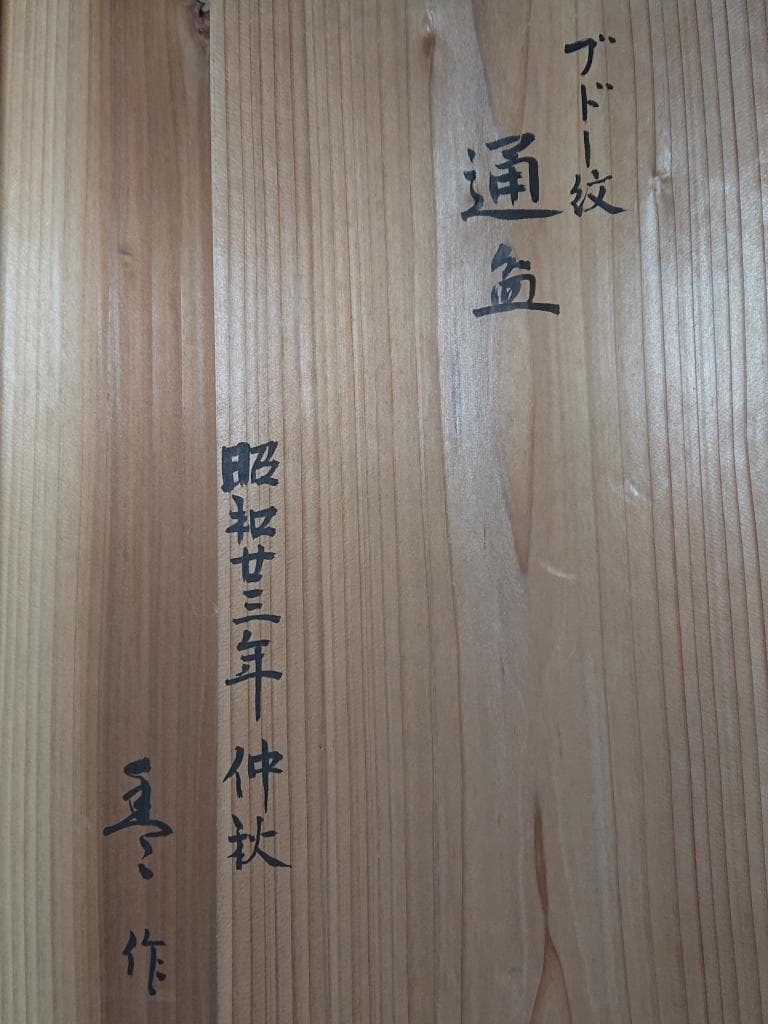 ブドー紋
通盆
昭和廿三年 仲秋
作